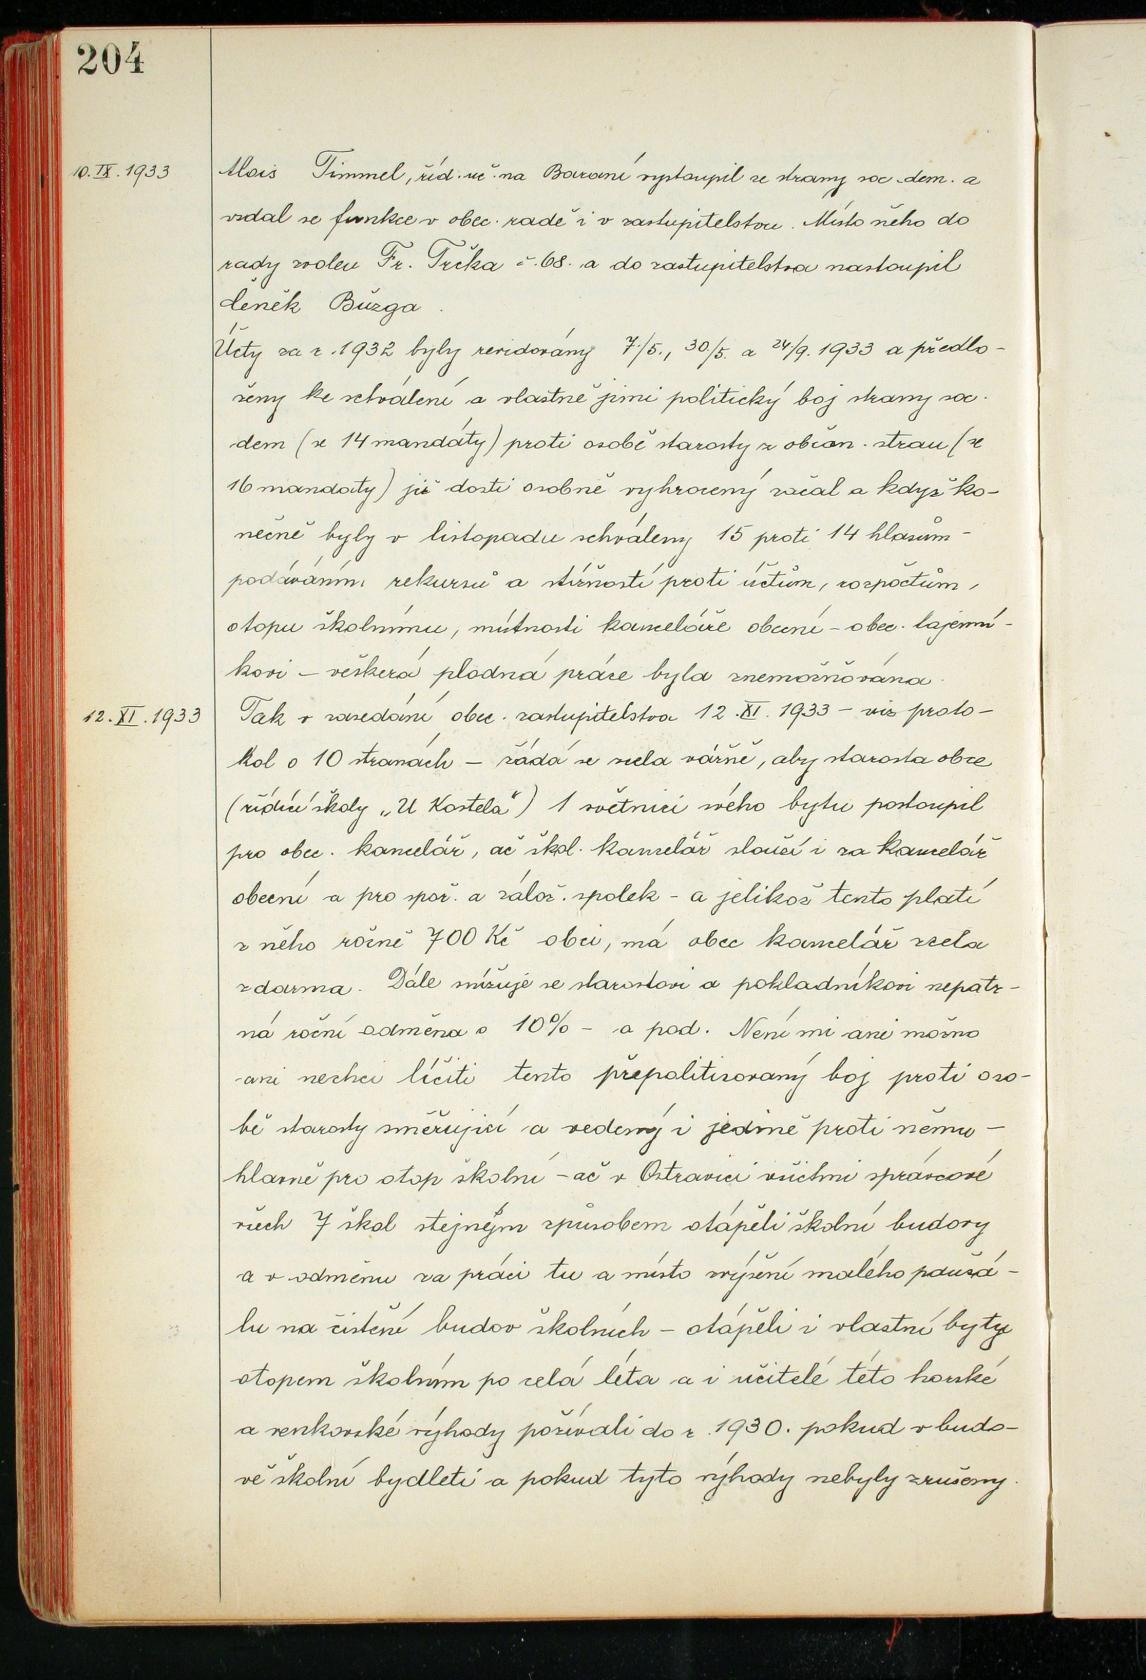 204
10.IX.1933 Alois Timmel, říd. uč. na Baraní vystoupil ze strany soc. dem. a
vzdal se funkce v obec. radě i v zastupitelstvu. Místo něho do
rady zvolen Fr. Trčka č. 68. a do zastupitelstva nastoupil
Čeněk Bůzga.
Účty za r. 1932 byly revidovány 7/5., 30/5. a 24/9. 1933 a předlo-
ženy ke schválení a vlastně jimi politický boj strany soc.
dem (se 14 mandáty) proti osobě starosty z občan. stran (se
16 mandáty) již dosti osobně vyhrocený začal a když ko-
nečně byly v listopadu schváleny 15 proti 14 hlasům -
podáváním rekursů a stížností proti účtům, rozpočtům,
otopu školnímu, místnosti kanceláře obecní - obec. tajemní-
kovi - veškerá plodná práce byla znemožňována.
12.XI.1933 Tak v zasedání obec. zastupitelstva 12.XI.1933 - viz proto-
kol o 10 stranách - žádá se zcela vážně, aby starosta obce
(řídící školy „U Kostela") 1 světnici svého bytu postoupil
pro obec. kancelář, ač škol. kancelář slouží i za kancelář
obecní a pro spoř. a zálož. spolek - a jelikož tento platí
z něho ročně 700 Kč obci, má obec kancelář zcela
zdarma. Dále snižuje se starostovi a pokladníkovi nepatr-
ná roční odměna o 10% - a pod. Není mi ani možno
ani nechci líčiti tento přepolitisovaný boj proti oso-
bě starosty směřující a vedený i jedině proti němu -
hlavně pro otop školní - ač v Ostravici všichni správcové
všech 7 škol stejným způsobem otápěli školní budovy
a v odměnu za práci tu a místo zvýšení malého paušá-
lu na čistění budov školních - otápěli i vlastní byty
otopem školním po celá léta a i učitelé této horské
a venkovské výhody požívali do r. 1930. pokud v budo-
vě školní bydleti a pokud tyto výhody nebyly zrušeny.